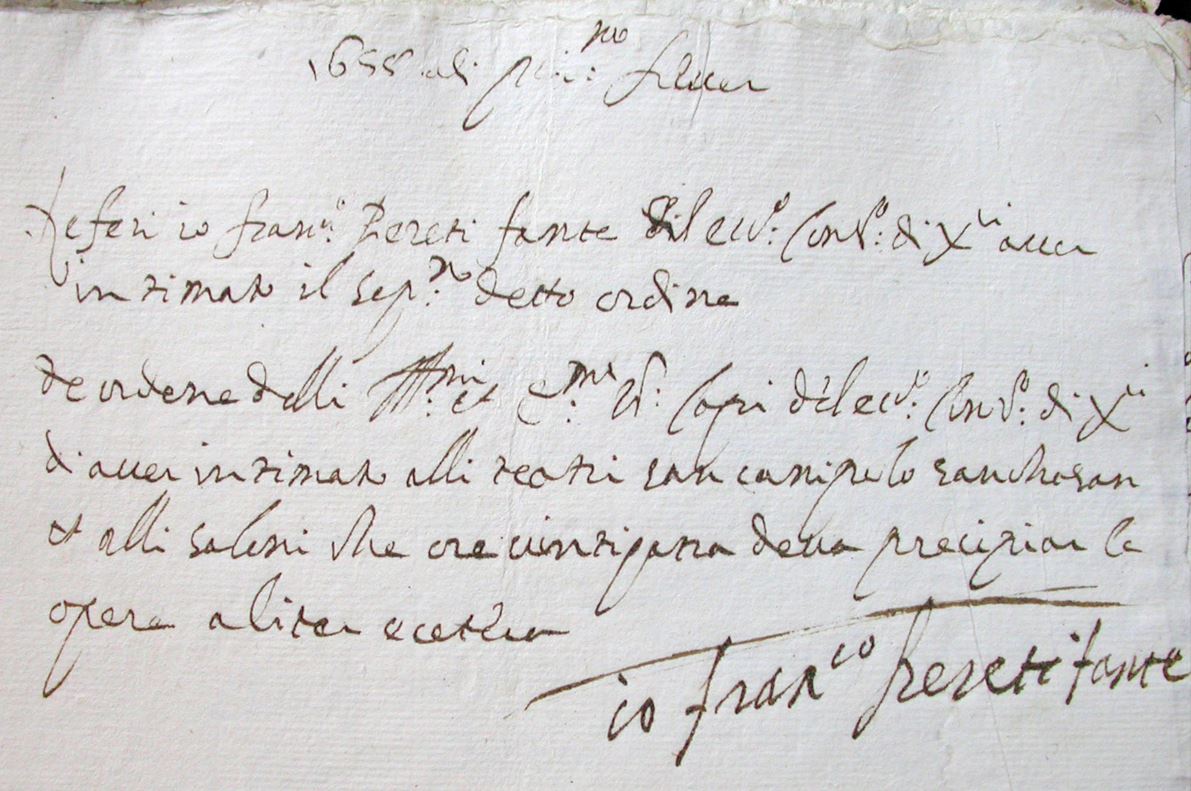 1658 adi pri:mo febver
Referi io Fran:co Pereti fante dil ecc:o Cons:o di X:ci aver
intimato il sop:to detto ordine
de ordene delli Ill:mi et Ecc:mi SS:ri Capi dil ecc:o Cons:o di X:ci
di aver intimato alli teatri san
et alli saloni che ore vinti quatro deva precipiar le
opere aliter ecetera
io Fran:co Pereti fante